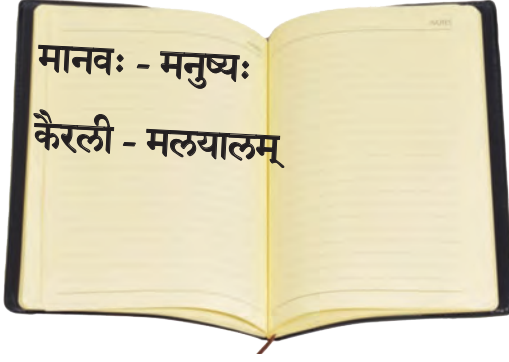 मानवः - मनुष्यः
कैरली - मलयालम्